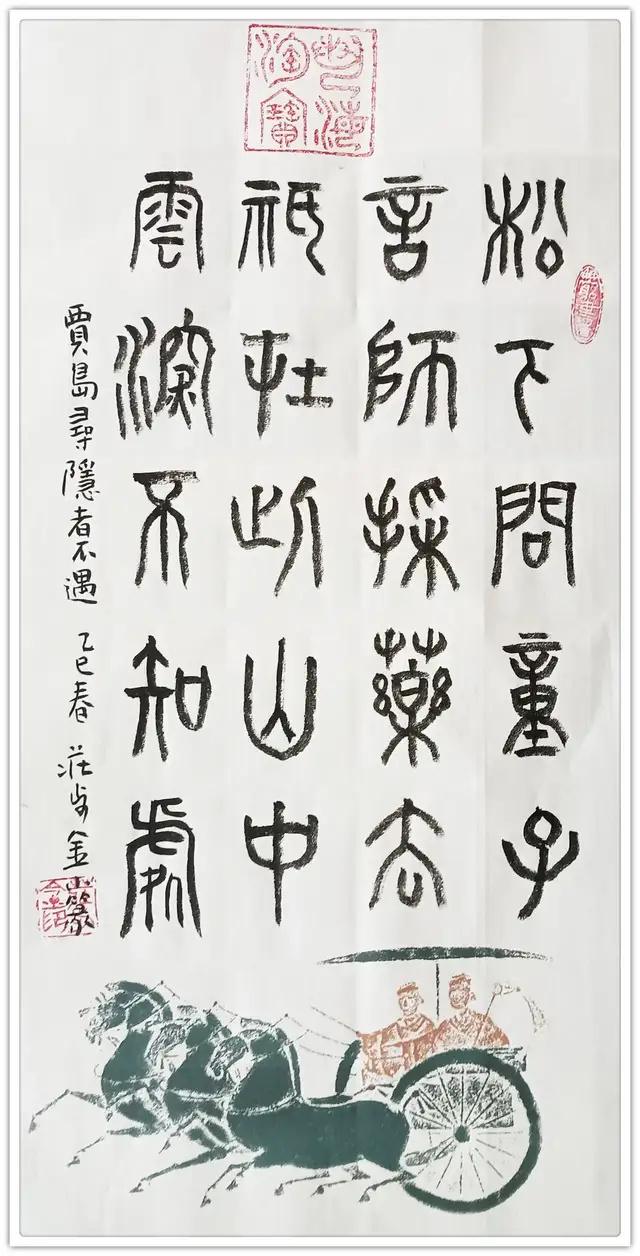 松下問童子
言師採藥去
祇在此山中
雲深不知處
賈島尋隱者不遇 乙巳春 莊步金篆